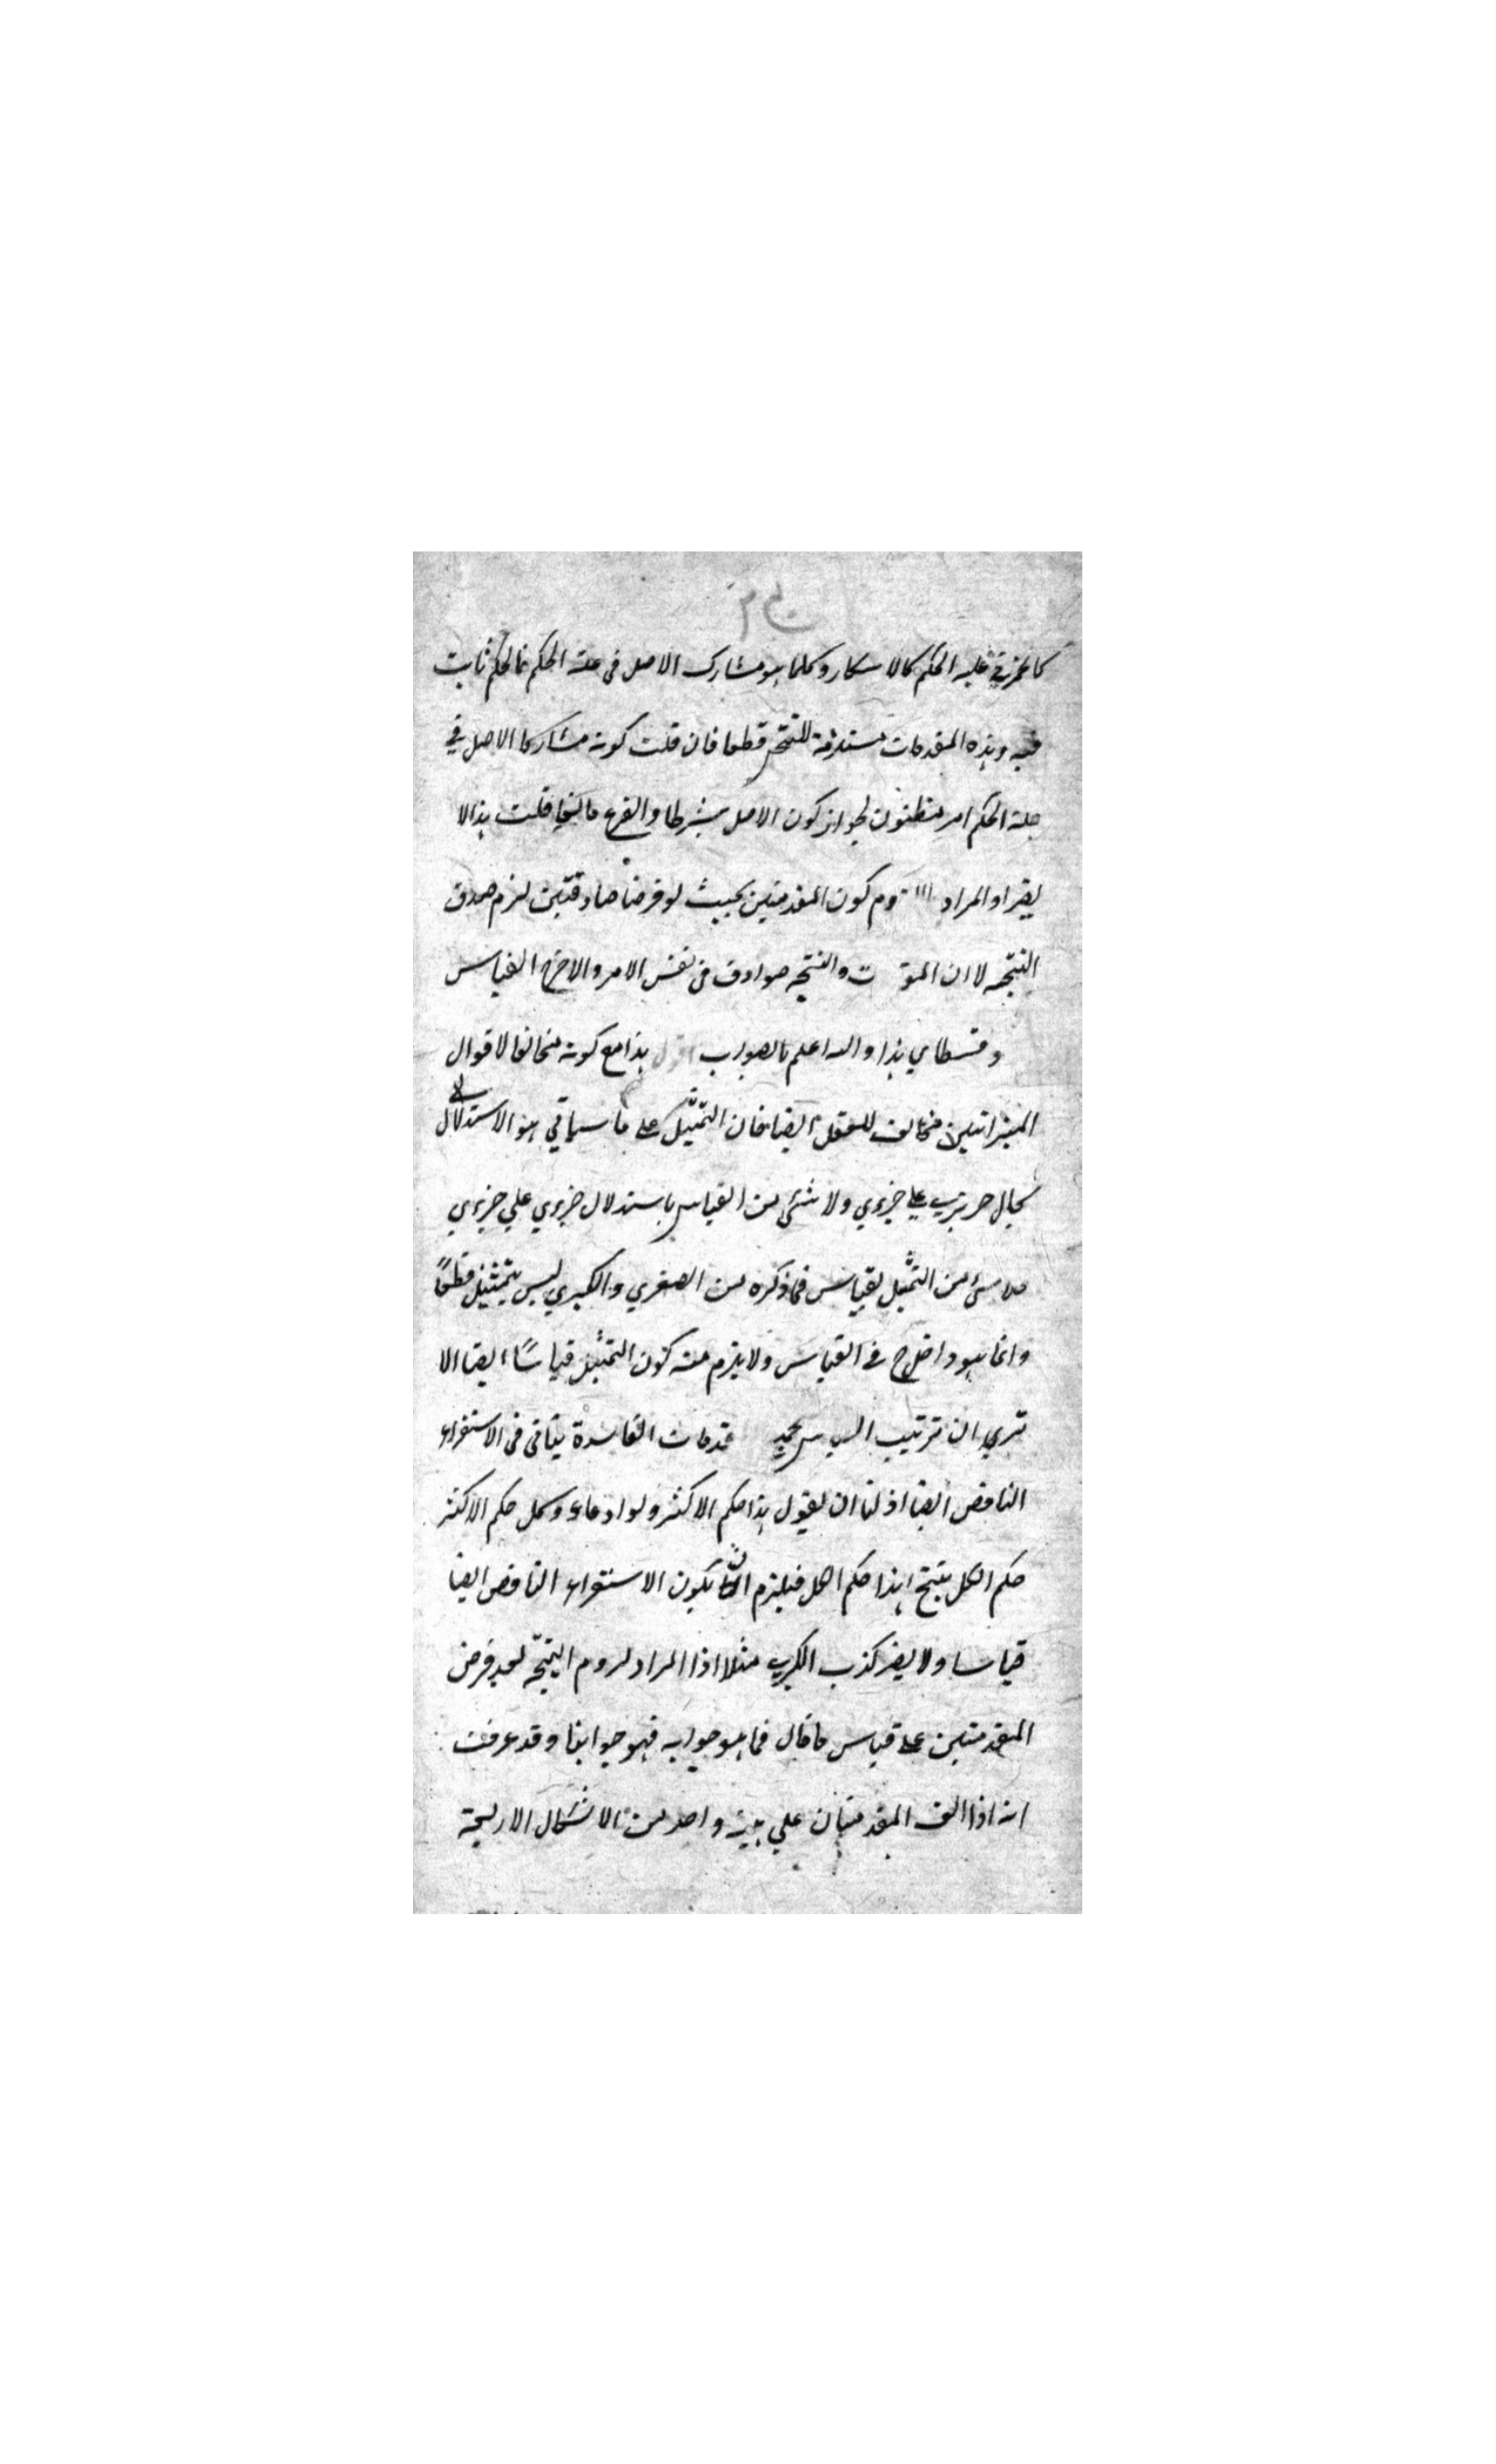 كالخمر في علية الحكم كالاسكار وكلما هو مشارك الاصل في علة الحكم فالحكم ثابت
فيه وهذه المقدمات مستلزمة للنتيجة قطعا فان قلت كونه مشاركا الاصل في
علة الحكم امر مظنون لجواز كون الاصل شرطا والفرع مانعا قلت هذا لا
يضر اذ المراد كون المقدمتين بحيث لو فرضنا صادقتين لزم صدق
النتيجة لا ان والنتيجة صوادق في نفس الامر والا خرج القياس
هذا والله اعلم بالصواب اقول هذا مع كونه مخالفا لاقوال
الميزانيين مخالف للعقل ايضا فان التمثيل على ما سياتي هو الاستدلال
بحال جزئي على جزئي ولا شئ من القياس باستدلال جزئي علي جزئي
فلا شئ من التمثيل بقياس فما ذكره من الصغري والكبري ليس بتمثيل قطعًا
وانما هو داخل في القياس ولا يلزم منه كون التمثيل قياسًا ايضا الا
تري ان ترتيب الفاسدة يتاتى في الاستقراء
الناقص ايضا اذ لنا ان نقول هذا حكم الاكثر ولو ادعاء وكل حكم الاكثر
حكم الكل ينتج هذا حكم الكل فيلزم ان يكون الاستقراء الناقص ايضا
قياسا ولا يضر كذب الكبري مثلا اذ المراد لزوم النتيجة بعد فرض
المقدمتين على قياس ما قال فما هو جوابه فهو جوابنا وقد عرفت
انه اذا الف المقدمتان علي هيئة واحد من الاشكال الاربعة